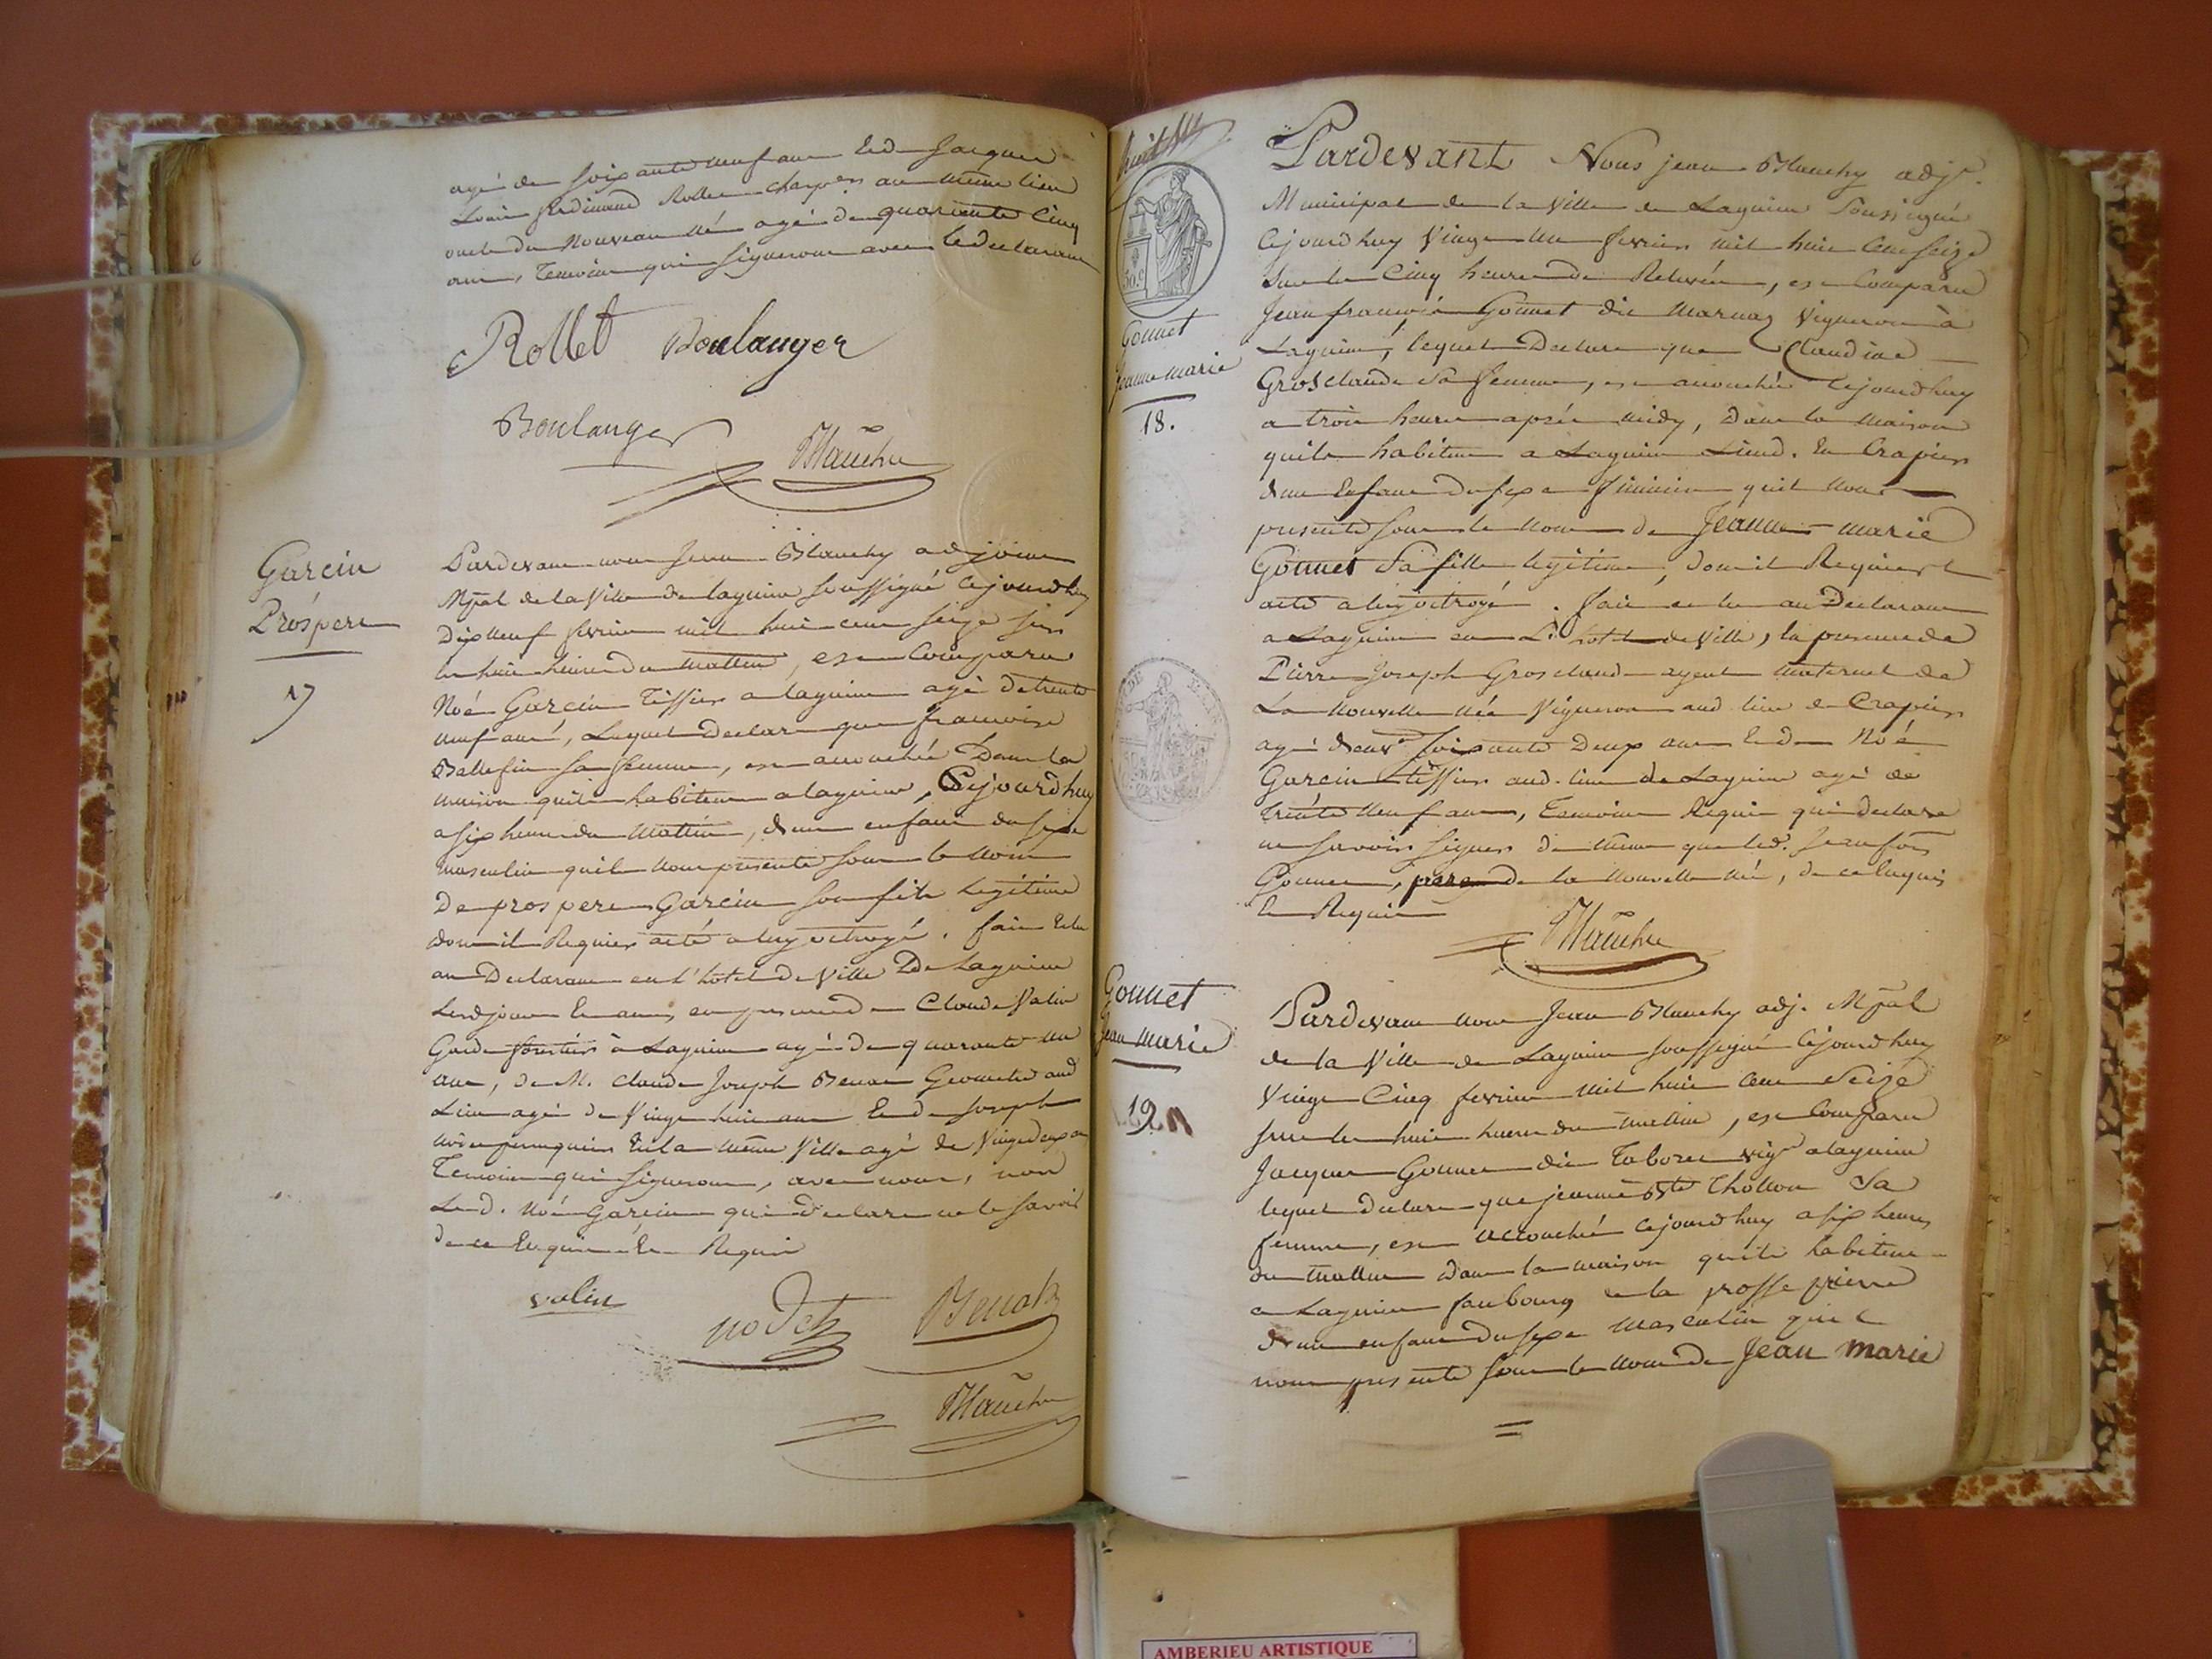 agé de soixante neuf ans Et de Jacques
Louis ferdinand Rollet charpen au même lieu
oncle du Nouveau né agé de quarante Cinq
ans, Temoins qui signeront avec le declarant
Rollet Boulanger
Boulanger
Blanchy
Garcin
Prospere
17
Pardevant nous Jean Blanchy adjoint
Mpal de la Ville de lagnieu soussigné Cejourdhuy
Dix neuf fevrier mil huit cent seize sur
les huit heures du mattin, est Comparu
Noé Garcin Tissier a lagnieu agé de trente
neuf ans, Lequel declare que francoise
sa femme, est accouchée Dans la
maison quils habitent a lagnieu, Cejourdhuy
a six heures du Mattin, d'un enfant du sexe
masculin quil nous presente sous le Nom
De prospere Garcin son fils legitime
dont il Requier acte a luy octroyé. fait Et lu
au Declarant en L'hotel de Ville De Lagnieu
Lesd jour Et an, en presence de Claude Valin
Garde forestier à Lagnieu agé de quarante un
ans, de M. Claude Joseph Benoit Geometre aud
Lieu agé de Vingt huit ans Et de Joseph
perruquier En la même Ville agé de Vingt deux an
Temoins qui signeront, avec nous, non
Led. Noé Garcin qui declare ne le savoir
de ce Enquis Et Requis
valin
nodet Benoit
Blanchy
huit
50 c
Gonnet
Jeanne marie
18.
Pardevant Nous jean Blanchy adjt.
Municipal de la Ville de Lagnieu Soussigné
Cejourdhuy Vingt un fevrier mil huit Cent seize
Sur les Cinq heures de Relevée, est Comparu
Jean francois Gonnet dit Marnas Vigneron à
Lagnieu, lequel Declare que Claudine
Grosclaude Sa femme, est accouchée Cejourdhuy
a trois heures après midy, Dans la Maison
quils habitent a Lagnieu Lieud. En Crapier
d'un Enfant du sexe feminin quil nous
presente sous le nom de Jeanne-marie
Gonnet Sa fille legitime, dont il Requiert
acte a luy octroyé. fait et lu au Declarant
a Lagnieu en L'hotel de Ville, En presence de
Pierre Joseph Grosclaude ayeul maternel de
La Nouvelle Née Vigneron aud lieu de Crapier
agé d'env. soixante Deux ans Et de Noé
Garcin tissier aud. lieu de Lagnieu agé de
Trente Neuf ans, Temoins Requis qui declare
ne savoir signer de même que led. Jean fois
Gonnet, pere de la Nouvelle née, de ce Enquis
Et Requis
Blanchy
Gonnet
Jean Marie
19
Pardevant nous Jean Blanchy adj. Mpal
de la Ville de Lagnieu soussigné Cejourdhuy
Vingt Cinq fevrier mil huit Cent Seize
sur les huit heures du mattin, est Comparu
Jacques Gonnet dit Taboret vigon a lagnieu
lequel declare que jeanne Bste Thollon Sa
femme, est accouchée Cejourdhuy a six heures
du Mattin dans la maison quils habitent
a Lagnieu faubourg de la grosse pierre
d'un enfant du sexe Masculin quil
nous presente sous le nom de Jean Marie
AMBERIEU ARTISTIQUE